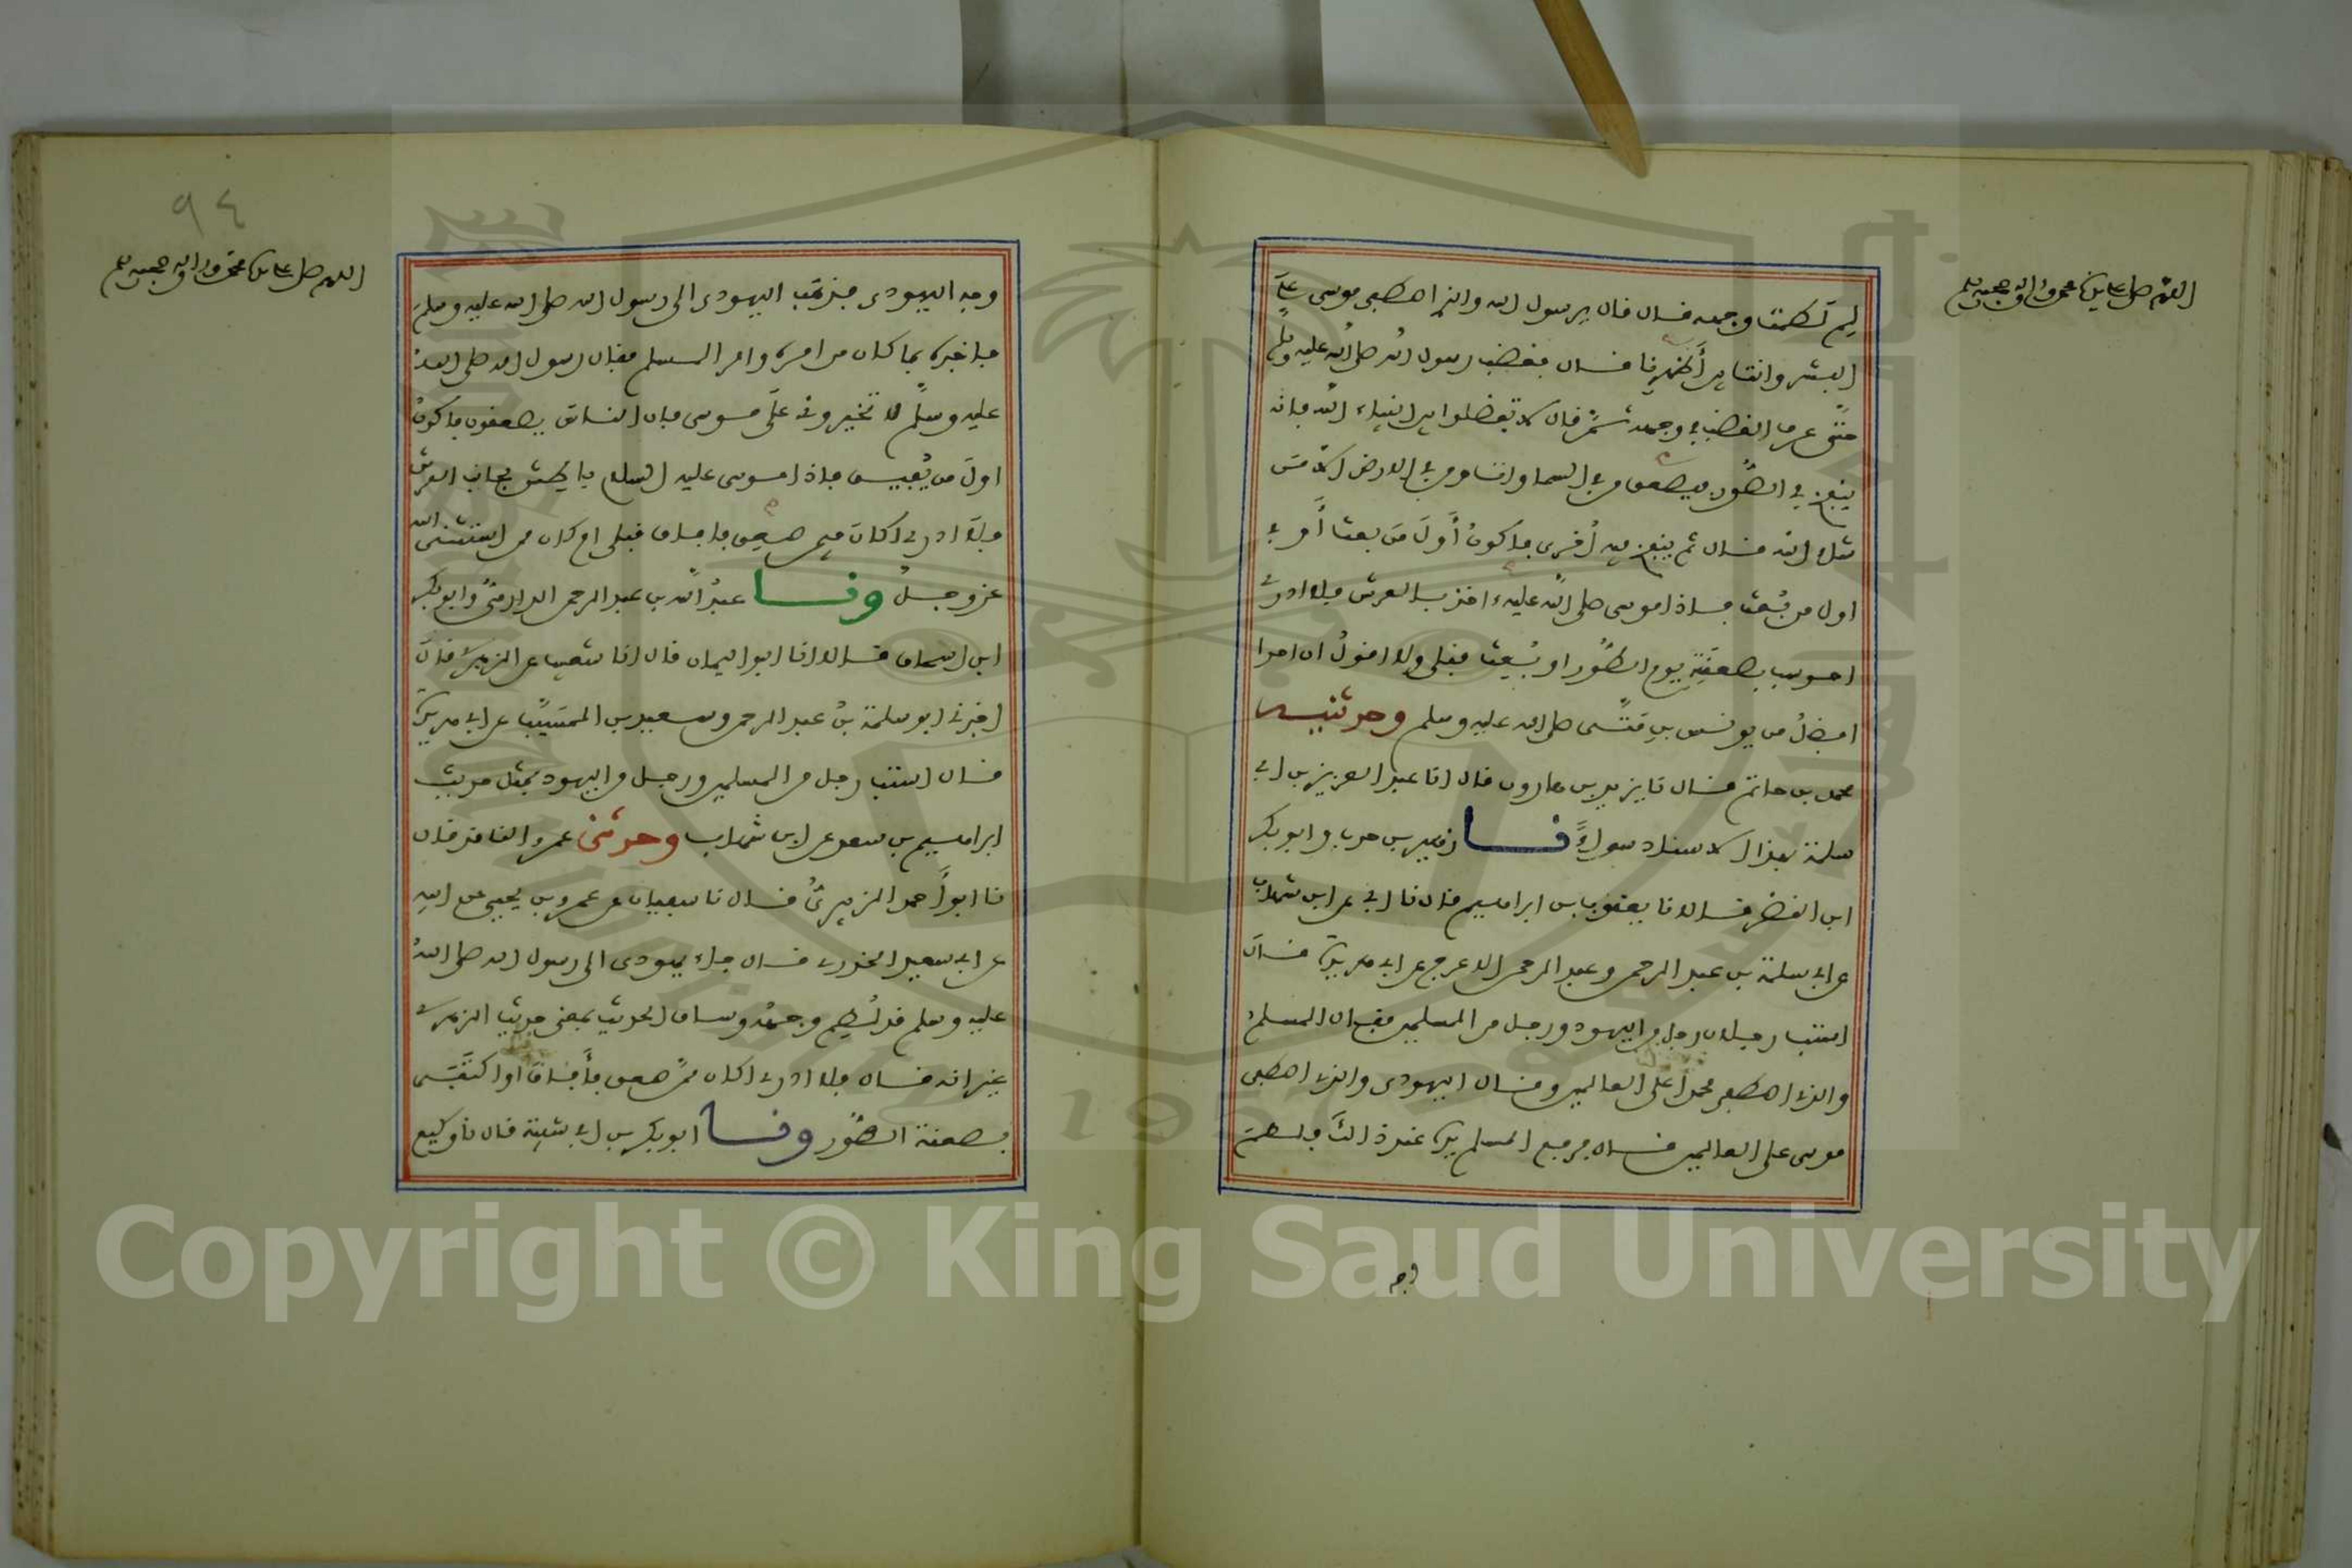 اللهم صل على سيدنا محمد واله وصحبه وسلم
لِمَ لَطمتَ وجهه فال فال يرسول الله والذي اصطفى موسى على
البشر وانت بين أَظهُرِنا فال فغضب رسول الله صلى الله عليه وسلم
حتى عرف الغضب في وجهه ثمّ فال لا تفضلوا بين انبياء الله فانه
ينفخ في الصُّور فيصعق من في السماوات ومن في الارض إلاّ مَن
شاء الله فال ثم ينفخ فيه أُخرى فأكونُ أَولَ مَن بعث أو في
اول من بُعث فاذا موسى صلى الله عليه ءاخذ بالعرش فلا ادري
احوسب بصعقَتِهِ يوم الطُّور او بُعِث فبلي ولا افولُ ان احدا
افضلُ من يونس بنِ مَتَّى صلى الله عليه وسلم وحدثنيه
محمد بن حاتم فال نا يزيد بن هارون فال انا عبد العزيز بن ابي
سلمة بهذا الاسناد سواءً نا زهير بن حرب وابو بكر
ابن النضر فالا نا يعفوب بن ابراهيم فال نا ابي عن ابن شهاب
عن ابي سلمة بن عبد الرحمن وعبد الرحمن الاعرج عن ابي هريرة فال
استب رجلان رجل من اليهود ورجل من المسلمين ففال المسلم
والذي اصطفى محمدا على العالمين وفال اليهودي والذي اصطفى
موسى على العالمين فال فرفع المسلم يده عند ذالك فلطم
وجه
٩٤
اللهم صل على سيدنا محمد واله وصحبه وسلم
وجه اليهودي فذهَب اليهودي الى رسول الله صلى الله عليه وسلم
فاخبره بما كان من امره وامر المسلم ففال رسول الله صلى الله
عليه وسلم لا تخيروني على موسى فان الناس يصعفون فاكونُ
اولَ من يُفيق فاذا موسى عليه السلام باطش بجانب العرش
فلا ادري اكان فيمن صعق فافاق فبلي ام كان ممن استثنى الله
عز وجل ونا عبدُ الله بن عبد الرحمن الدارميُّ وابو بكر
ابن اسحاق فالا انا ابو اليمان فال انا شعيب عن الزهري فال
اخبرني ابو سلمة بنُ عبد الرحمن وسعيد بن المسَيَّب عن ابي هريرة
فال استب رجل من المسلمين ورجل من اليهود بمثل حديث
ابراهيم بن سعد عن ابن شهاب وحدثني عمرو النافد فال
نا ابو أحمد الزبيريُّ فال نا سفيان عن عمرو بن يحيى عن ابيه
عن ابي سعيد الخدري فال جاء يهودي الى رسول الله صلى الله
عليه وسلم فد لُطِم وجهُه وساق الحديث بمعنى حديث الزهري
غير انه فال فلا ادري اكان ممن صعق فأَفاق أو اكتفى
بصعفة الطُّور ونا ابو بكر بن ابي شيبة فال نا وكيع
Copyright © King Saud University